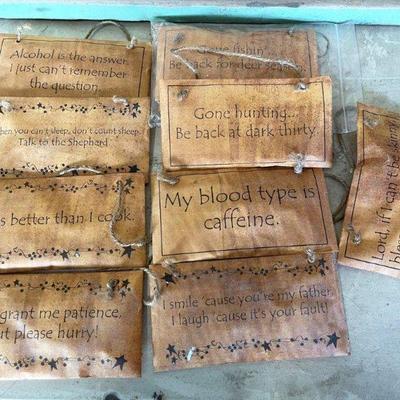 Alcohol is the answer,
I just can't remember
the question.
you can't sleep, don't count sheep.
Talk to the Shepherd
better than I cook.
grant me patience,
please hurry!
Gone fishin'
Be back for deer season.
Gone hunting...
Be back at dark thirty.
My blood type is
caffeine.
I smile 'cause you're my father.
I laugh 'cause it's your fault!
Lord, if I can't be skinny